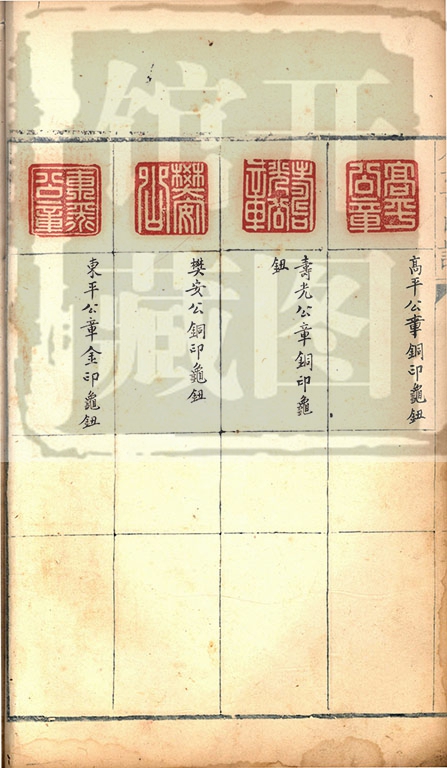 高平公章
高平公章銅印龜鈕
壽光公章
壽光公章銅印龜
鈕
樊安公
樊安公銅印龜鈕
東平公章
東平公章金印龜鈕
開
圖
館
藏